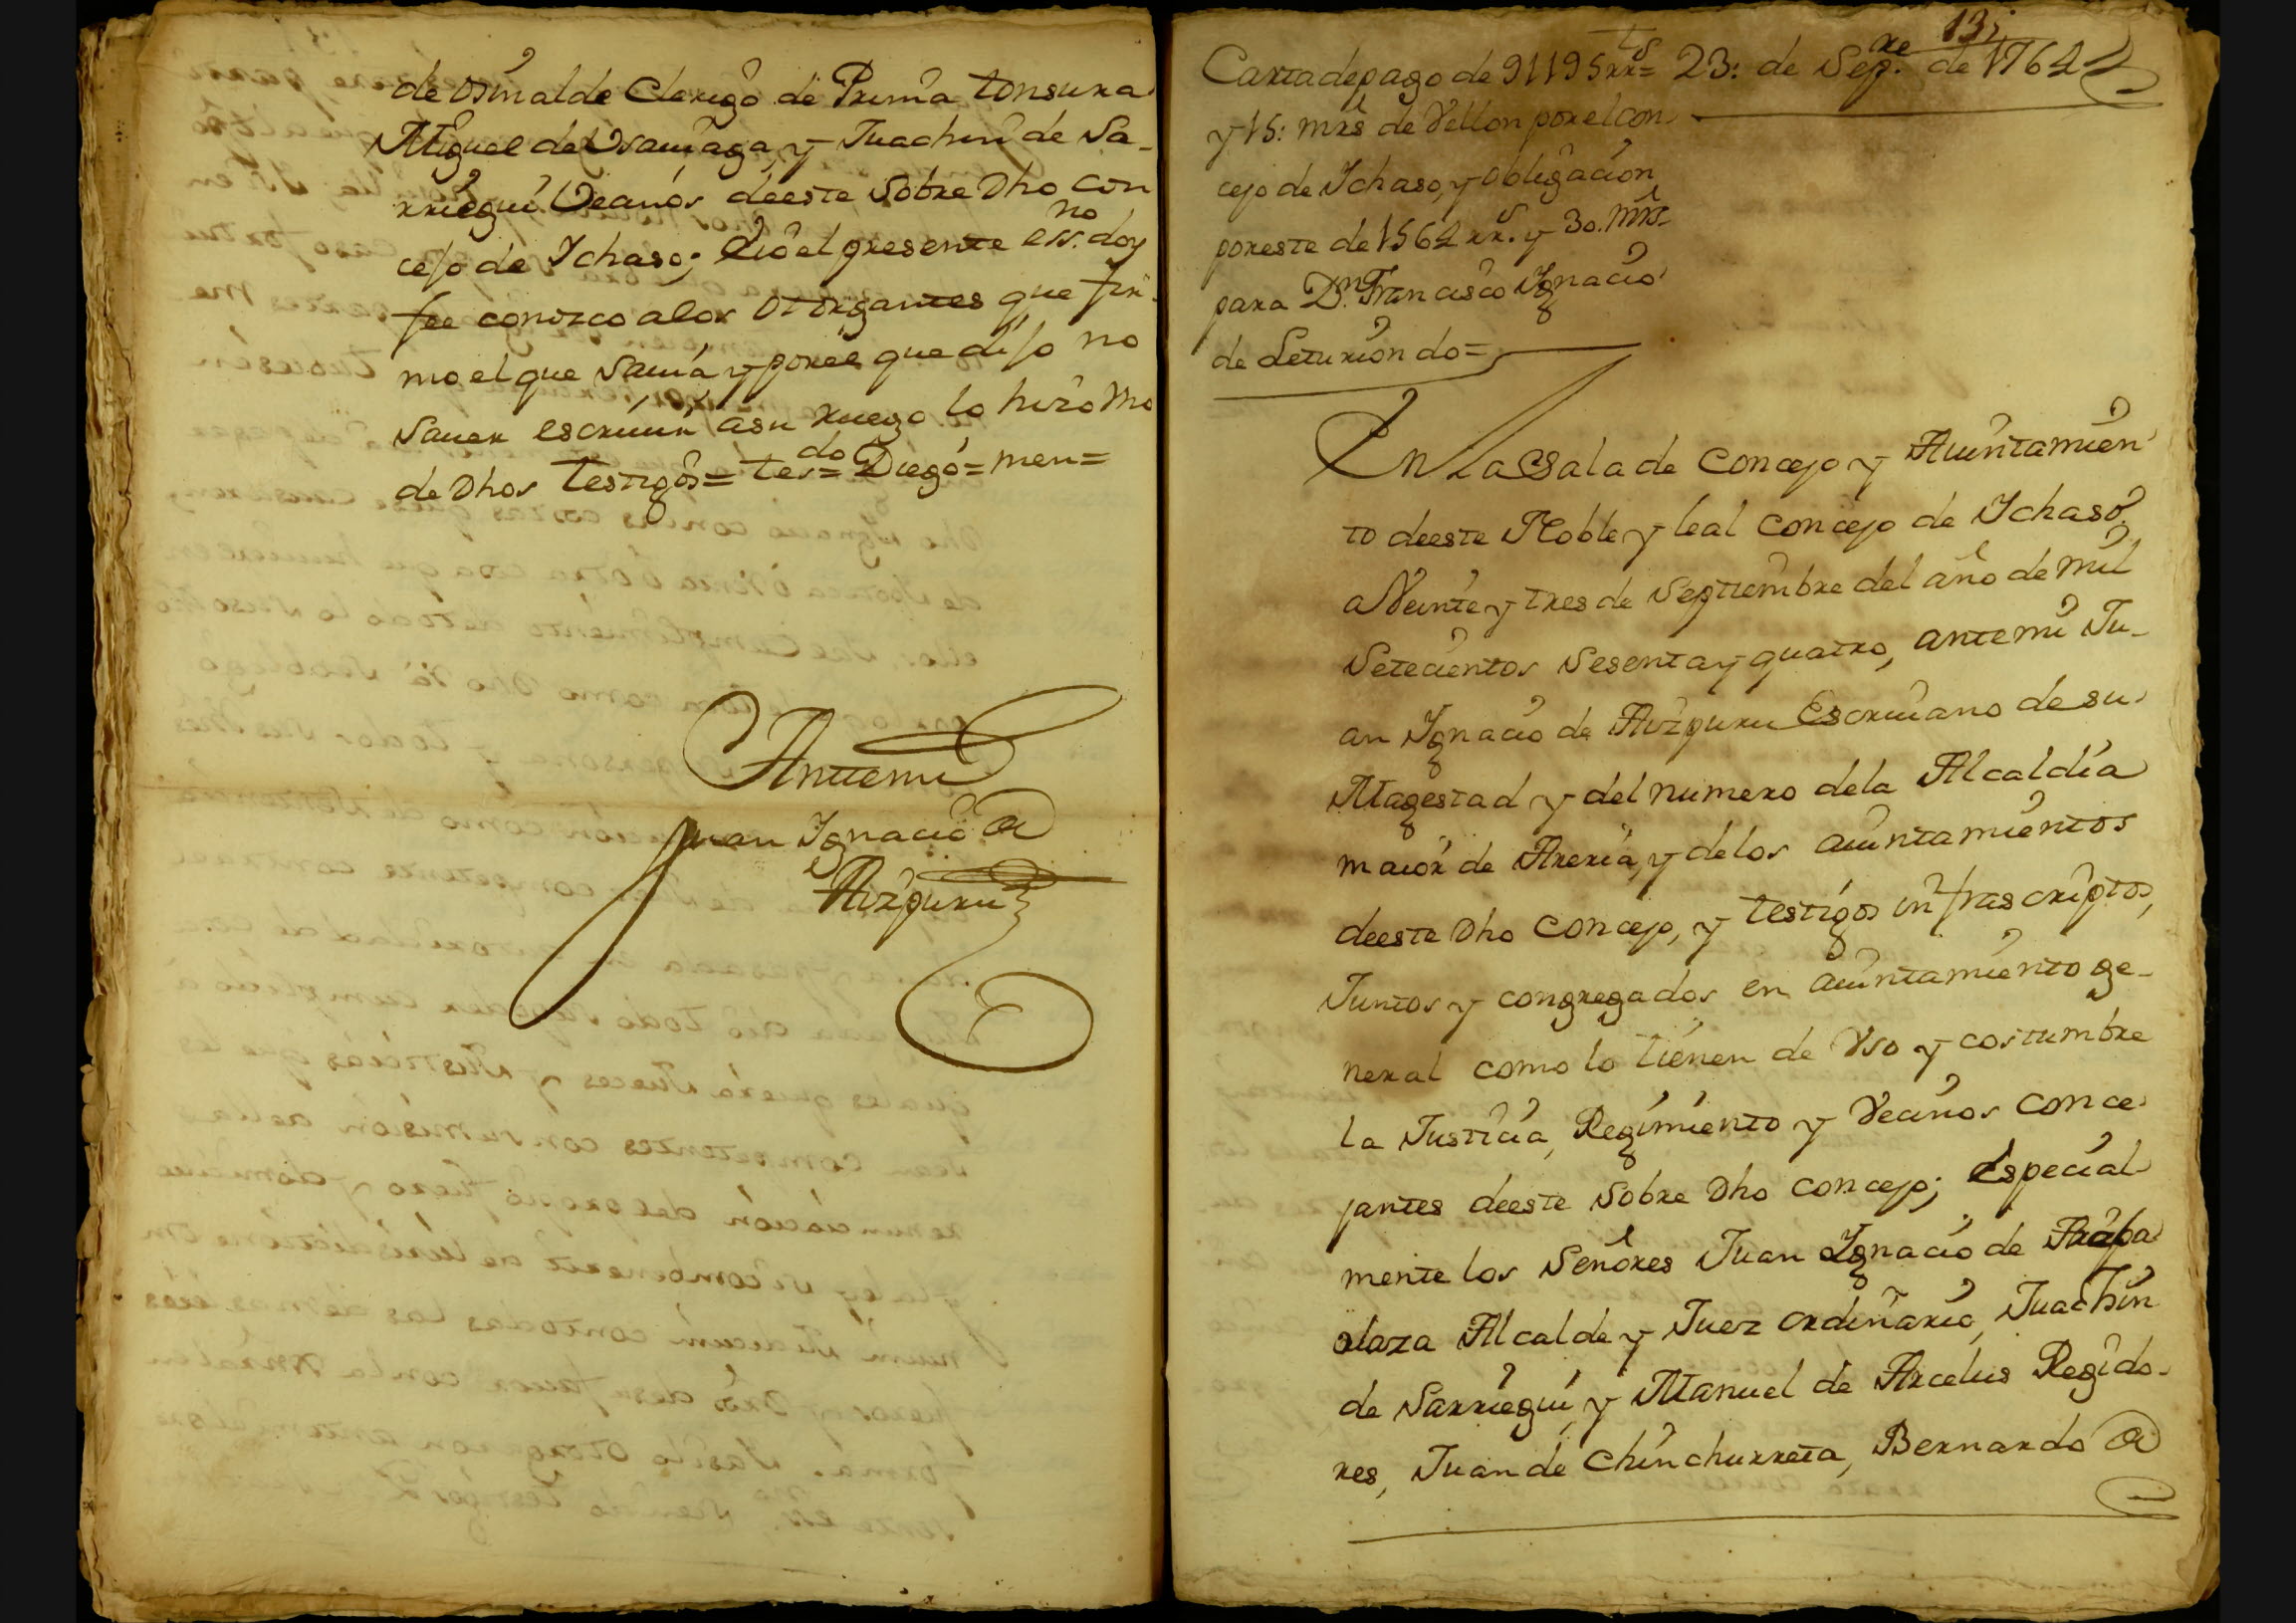 de osinalde Clerigo de Prima tonsura
Miguel de Usauiaga, y Juachin de Sa-
rriegui Vecinos deeste Sobre Dho Con
cejo de Ychaso; Eio el presente ess.no doy
fee conozco a los otorgantes que fir-
mo el que Sauia y por el que dijo no
Sauer escriuir asu ruego lo hizo Vno
de Dhos testigos = tes = do Diego = men =
Anttemi
Juan Ygnacio de
Aizpuru
131
Carta de pago de 91195 rrs = 23: de Sep.re de 1764
y 15: mrs de Vellon por el con
cejo de Ychaso, y obligacion
por este de 1562 rrs. y 30. mrs
para Dn. Francisco Ygnacio
de Leturiondo =
En La Sala de Concejo y Aiuntamien
to deeste Noble y leal Concejo de Ychaso,
a Veinte y tres de Septiembre del año de mil
Setecientos Sesenta y quatro, ante mi Ju-
an Ygnacio de Aizpuru Escriuano de su
Magestad y del numero dela Alcaldia
maior de Areria, y delos aiuntamientos
deeste Dho Concejo, y testigos infrascriptos,
Juntos y congregados en aiuntamiento ge-
neral como lo tienen de Vso y costumbre
la Justicia, Regimiento y Vecinos conce
jantes deeste Sobre Dho concejo; especial
mente los Señores Juan Ygnacio de
olaza Alcalde y Juez ordinario, Juachin
de Sarriegui, y Manuel de Arcelus Regido-
res, Juan de Chinchurreta, Bernardo de